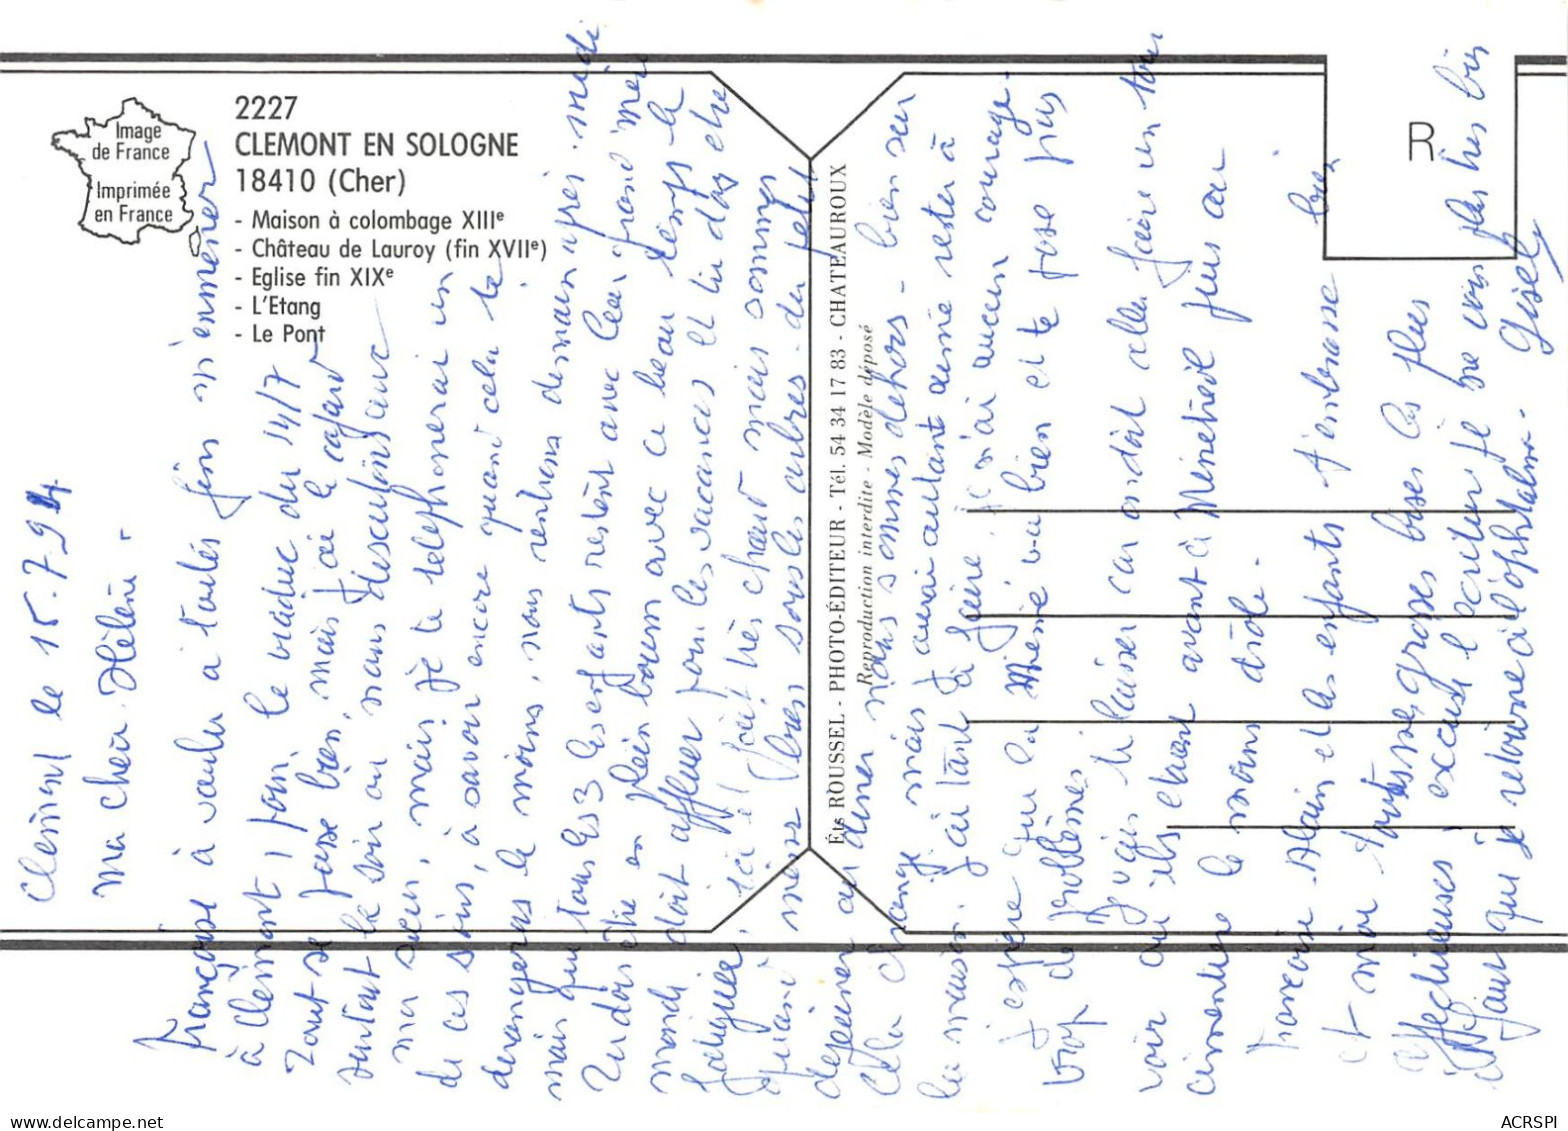 Image
de France
Imprimée
en France
2227
CLEMONT EN SOLOGNE
18410 (Cher)
- Maison à colombage XIIIe
- Château de Lauroy (fin XVIIe)
- Eglise fin XIXe
- L'Etang
- Le Pont
R
Éts ROUSSEL - PHOTO-ÉDITEUR - Tél. 54 34 17 83 - CHATEAUROUX
Reproduction interdite - Modèle déposé
Clémont le 15.7.94
Ma chère Hélène.
Françoise à voulu a toutes fins m'emmener
à Clémont, pour le viaduc du 14/7
Tout se passe bien, mais j'ai le cafard
surtout le soir ou nous discutons avec
ma sœur, mais je te telephonerai un
de ces soirs, à savoir encore quand cela te
derangeras le moins, nous rentrons demain après-midi
mais que tous les 3 les enfants restent avec leur grand mère
Tu dois être en plein boum avec ce beau temps le
monde doit affluer pour les vacances et tu dois être
fatiguée. Ici il fait très chaud mais sommes
quand même bien sous les arbres. du petit
dejeuner au diner nous sommes dehors - bien sur
Cela change mais j'aurai autant aimé rester à
la maison. J'ai tant à faire, je n'ai aucun courage.
J'espère que la Mémé va bien et te pose pas
trop de problèmes
Je vais te laisser car on doit aller faire un tour
voir où ils etaient avant à Ménétréol
cimentée le moins drôle.
Françoise Alain et les enfants t'embrasse
et moi toutes mes grosses bises les plus
affectueuses excuse l'écriture je ne vois plus très bien
il faut que je retourne à l'ophtalmo. Gisèle
ACRSPI